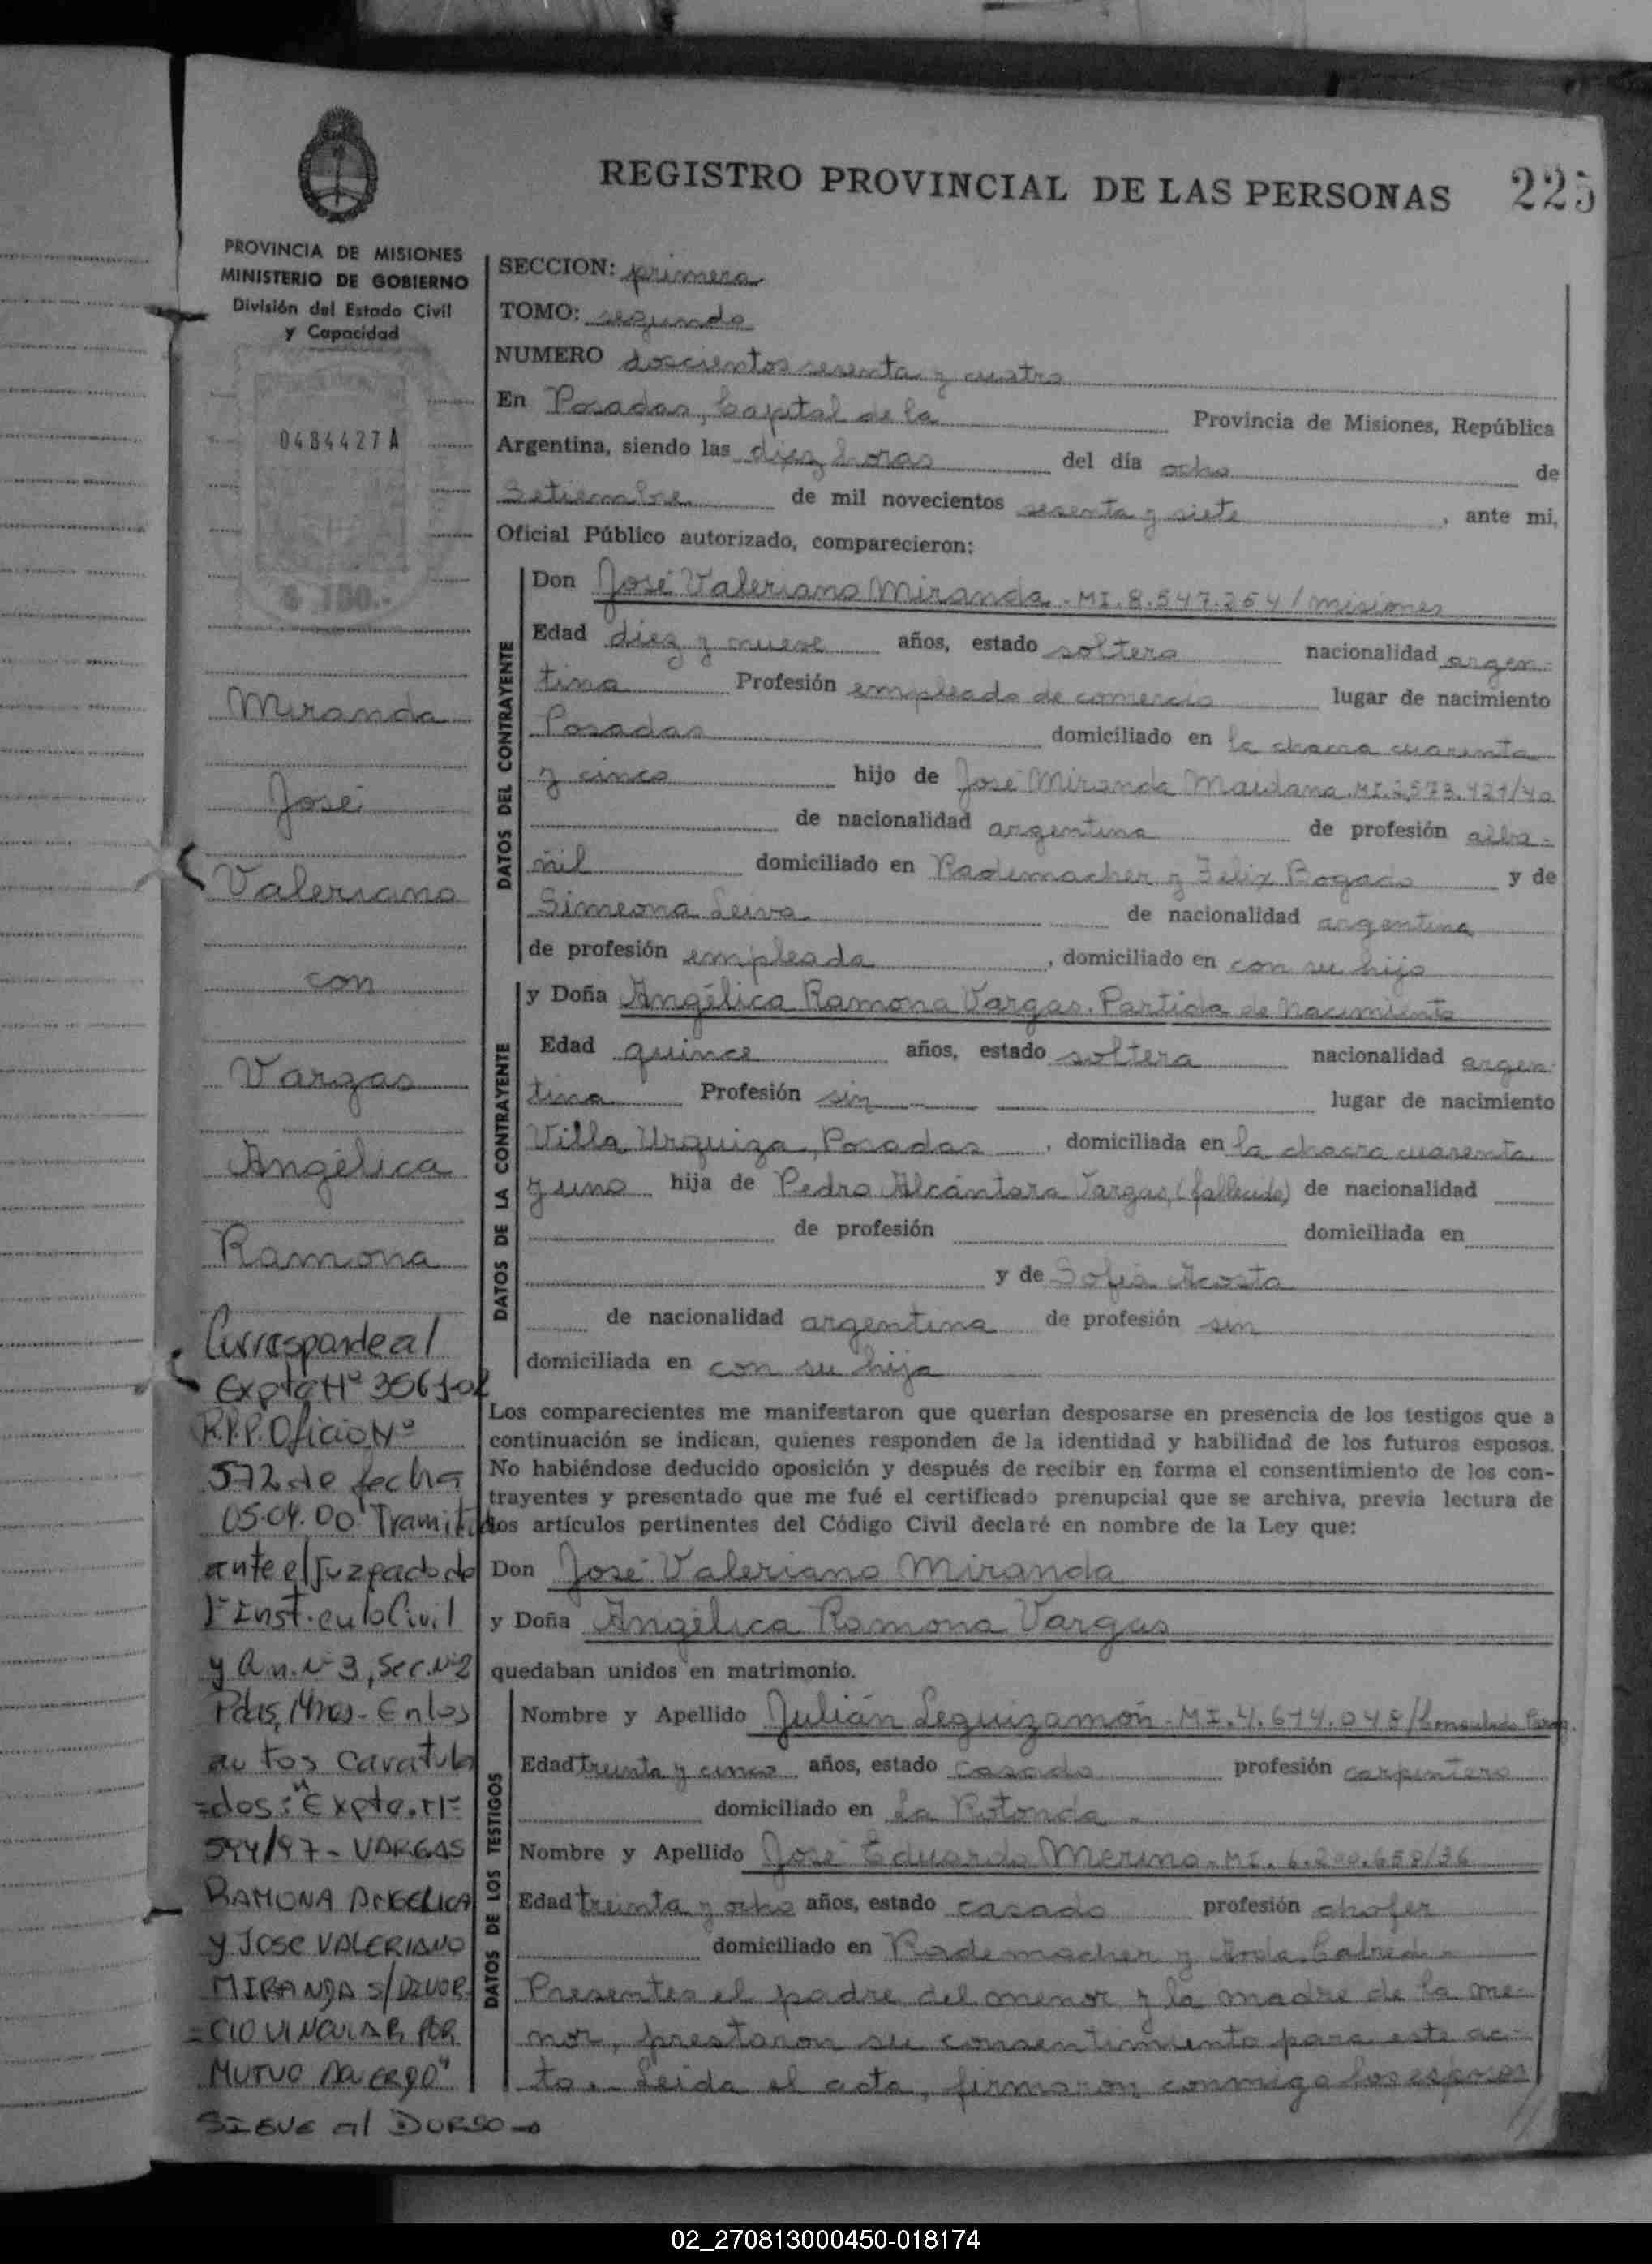 REGISTRO PROVINCIAL DE LAS PERSONAS 225
PROVINCIA DE MISIONES
MINISTERIO DE GOBIERNO
División del Estado Civil
y Capacidad
0484427A
$ 150.-
Miranda
José
Valeriano
con
Vargas
Angélica
Ramona
Corresponde al
Expte Nº
R.P.P. Oficio Nº
572 de fecha
05.04.00 Tramit
ante el Juzgado de
1ª Inst. en lo Civil
y Nº 3, Sec. Nº2
Pdas, Mnes- En los
autos caratula
=dos: "Expte. Nº
594/97 - VARGAS
RAMONA ANGELICA
y JOSE VALERIANO
MIRANDA S/DIVOR
=CIO VINCULAR POR
MUTUO ACUERDO"
SIGUE al DORSO
SECCION: primera
TOMO: segundo
NUMERO doscientos sesenta y cuatro
En Posadas, Capital de la Provincia de Misiones, República
Argentina, siendo las diez horas del día ocho de
Setiembre de mil novecientos sesenta y siete, ante mi,
Oficial Público autorizado, comparecieron:
DATOS DEL CONTRAYENTE
Don José Valeriano Miranda - MI. 8.547.254/misiones
Edad diez y nueve años, estado soltero nacionalidad argen-
tina Profesión empleado de comercio lugar de nacimiento
Posadas domiciliado en la chacra cuarenta
y cinco hijo de José Miranda Maidana. MI. 2.573.421/40
de nacionalidad argentina de profesión alba-
ñil domiciliado en Rademacher y Felix Bogado y de
Simeona Leiva de nacionalidad argentina
de profesión empleada, domiciliado en con su hijo
DATOS DE LA CONTRAYENTE
y Doña Angélica Ramona Vargas. Partida de Nacimiento
Edad quince años, estado soltera nacionalidad argen-
tina Profesión sin lugar de nacimiento
Villa Urquiza, Posadas, domiciliada en la chacra cuarenta
y uno hija de Pedro Alcántara Vargas, (fallecido) de nacionalidad
de profesión domiciliada en
y de Sofia Acosta
de nacionalidad argentina de profesión sin
domiciliada en con su hija
Los comparecientes me manifestaron que querían desposarse en presencia de los testigos que a
continuación se indican, quienes responden de la identidad y habilidad de los futuros esposos.
No habiéndose deducido oposición y después de recibir en forma el consentimiento de los con-
trayentes y presentado que me fué el certificado prenupcial que se archiva, previa lectura de
los artículos pertinentes del Código Civil declaré en nombre de la Ley que:
Don José Valeriano Miranda
y Doña Angélica Ramona Vargas
quedaban unidos en matrimonio.
DATOS DE LOS TESTIGOS
Nombre y Apellido Julián Leguizamón - MI. 4.674.048/Consulado Parag.
Edad treinta y cinco años, estado casado profesión carpintero
domiciliado en La Rotonda -
Nombre y Apellido José Eduardo Merino - MI. 6.200.658/36
Edad treinta y ocho años, estado casado profesión chofer
domiciliado en Rademacher y
Presentes el padre del menor y la madre de la me-
nor, prestaron su consentimiento para este ac-
to. - Leida el acta, firmaron conmigo los esposos
02_270813000450-018174